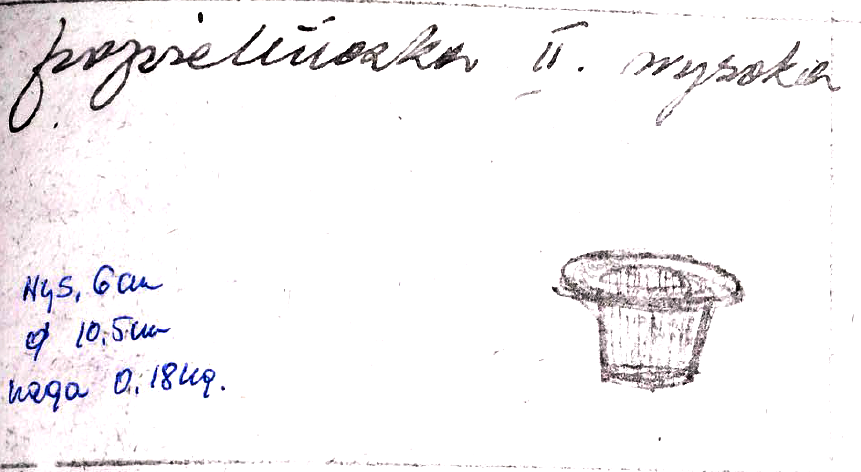 popielniczka II. wysoka
Wys. 6cm
ø 10.5cm
waga 0.18kg.